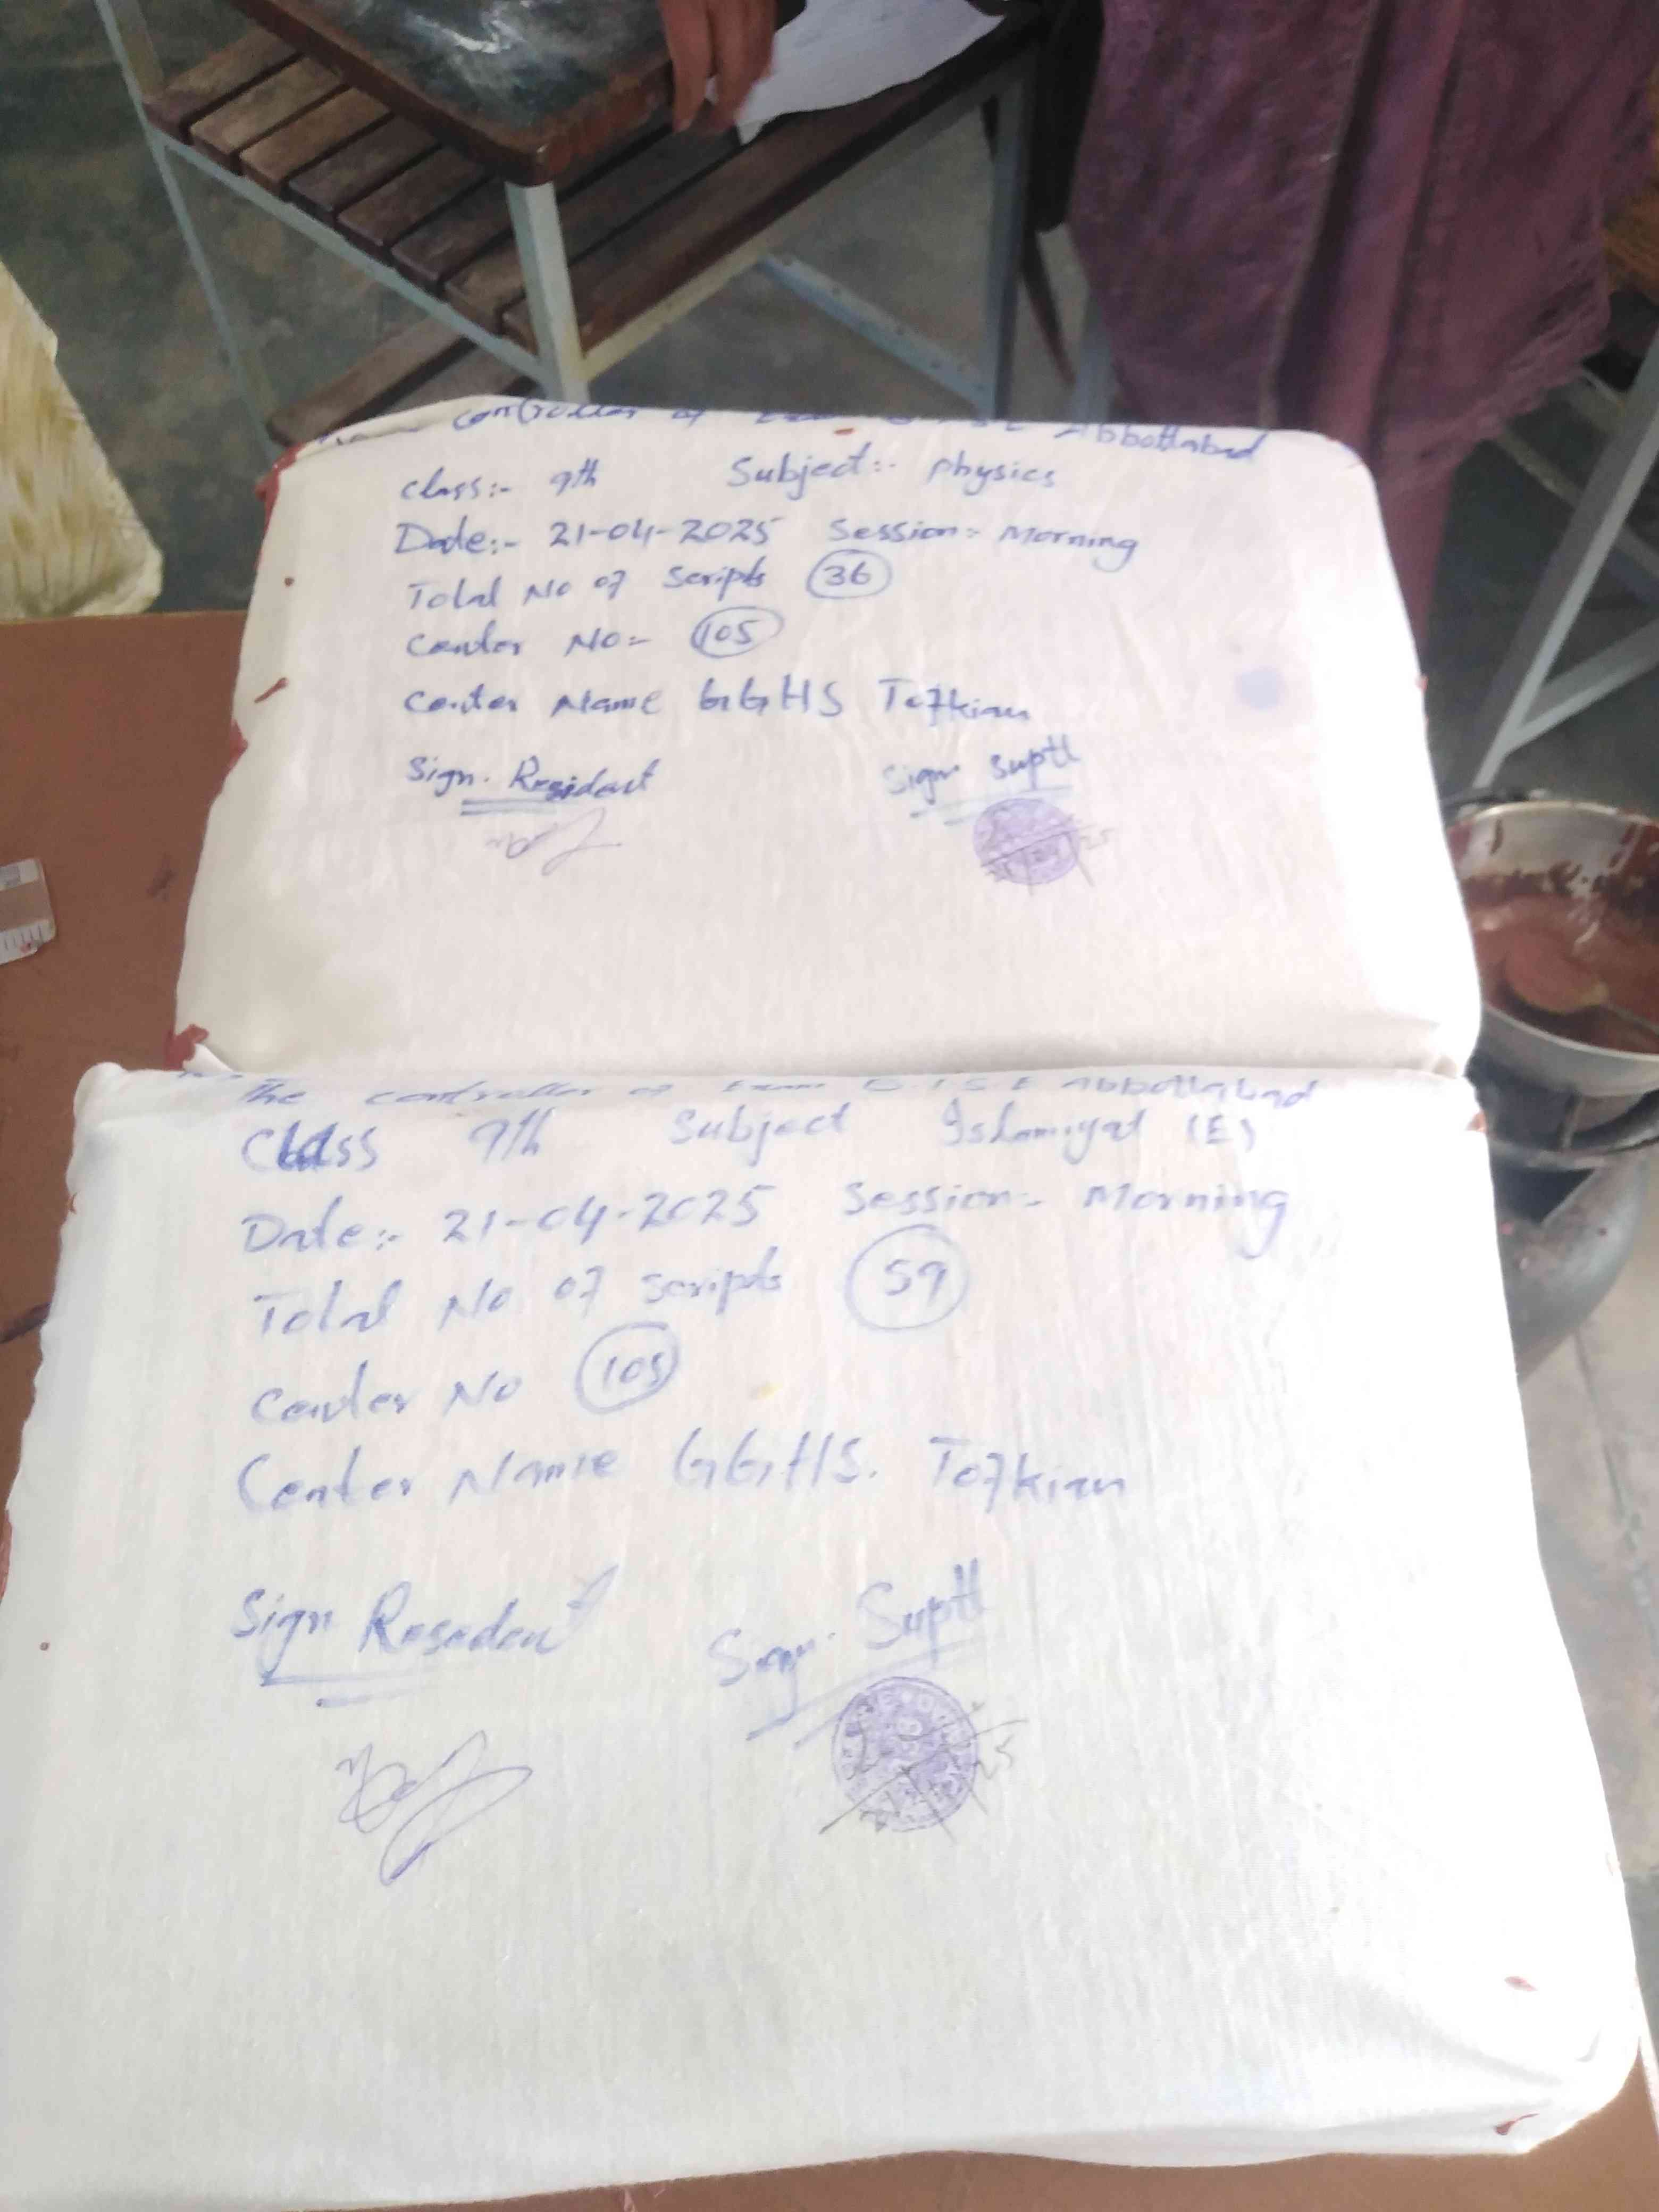 The controller of Exam B.I.S.E Abbottabad
Class:- 9th Subject:- Physics
Date:- 21-04-2025 Session:- Morning
Total No of Scripts 36
Center No:- 105
Center Name GGHS Tofkian
Sign. Resident Sign Suptt
The controller of Exam B.I.S.E Abbottabad
Class 9th Subject Islamiyat (E)
Date:- 21-04-2025 Session:- Morning
Total No of scripts 59
Center No 105
Center Name GGHS. Tofkian
Sign Resedent Sign. Suptt